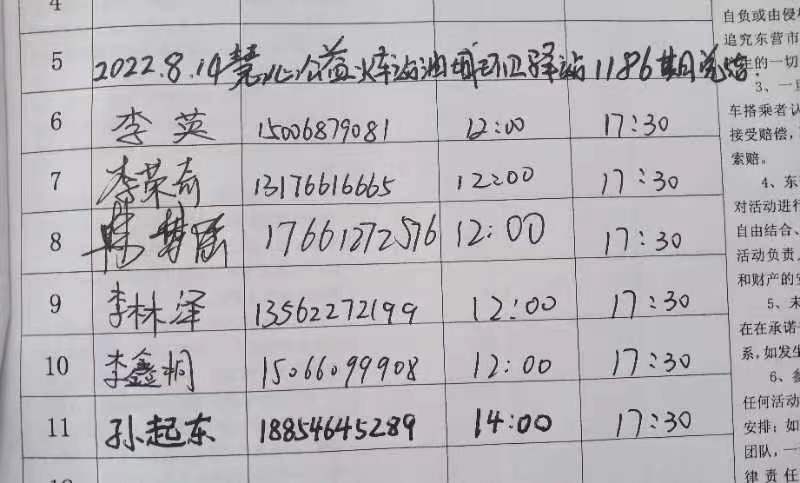 4
5 2022.8.14慧心公益火车站油城环卫驿站1186期总结.
6 李英 15006879081 12:00 17:30
7 李荣奇 13176616665 12:00 17:30
8 17661272576 12:00 17:30
9 李林泽 13562272199 12:00 17:30
10 李鑫桐 15066099908 12:00 17:30
11 孙起东 18854645289 14:00 17:30
自负或由侵
追究东营市
生的一切
3、一旦
车搭乘者认
接受赔偿，
索赔。
4、东
对活动进行
自由结合、
活动负责
和财产的安
5、未
在在承诺
系,如发生
6、参
任何活动
安排；如
团队，一
律责任